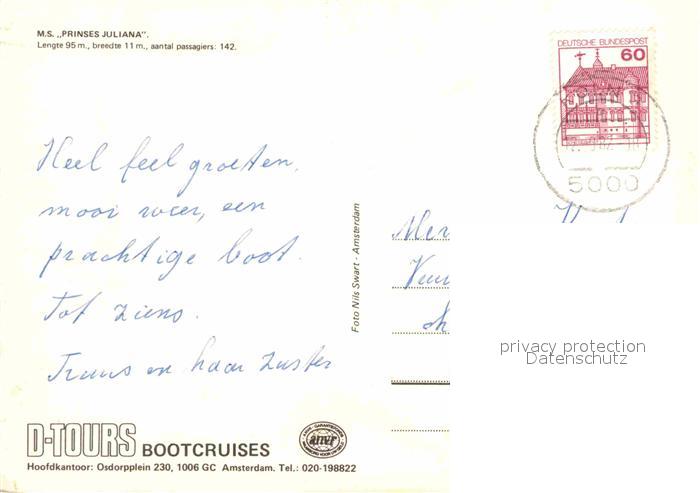 M.S. „PRINSES JULIANA".
Lengte 95 m., breedte 11 m., aantal passagiers: 142.
DEUTSCHE BUNDESPOST
60
5000
Heel feel groeten,
mooi weer, een
prachtige boot.
Tot ziens.
Truus en haar zuster
Foto Nils Swart - Amsterdam
Mer
privacy protection
Datenschutz
D-TOURS BOOTCRUISES
anvr
Hoofdkantoor: Osdorpplein 230, 1006 GC Amsterdam. Tel.: 020-198822